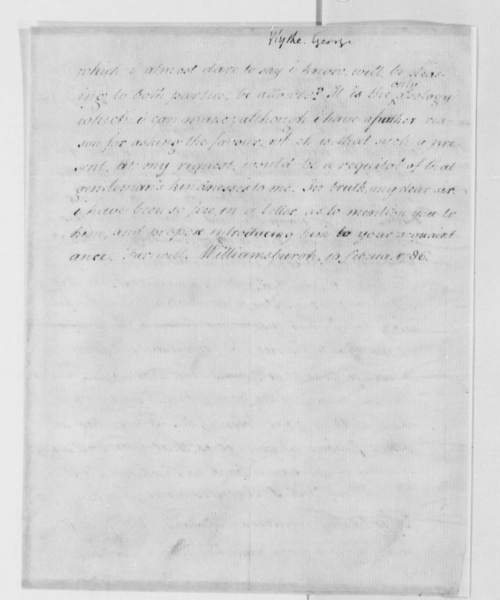 Wythe. George
which i almost dare to say i know, will be pleas
ing to both parties, be allowed? It is the only apology
which i can make, although i have a further rea
son for asking the favour, which is that such a pre
sent, at my request, would be a requital of that
gentleman's kindnesses to me. In truth, my dear sir,
i have been so free, in a letter, as to mention you to
him, and propose introducing him to your acquaint
ance. Farewell. Williamsburgh, 10 1786.